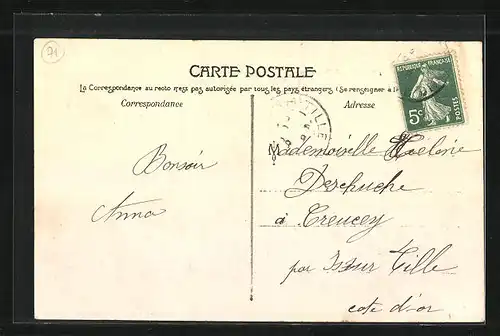 71
CARTE POSTALE
La Correspondance au recto n'est pas autorisée par tous les pays étrangers (Se renseigner à
Correspondance
Adresse
REPUBLIQUE FRANÇAISE
5c
POSTES
TILLE
Bonsoir
Anna
Mademoiselle
à Creucey
par Is sur Tille
cote d'or